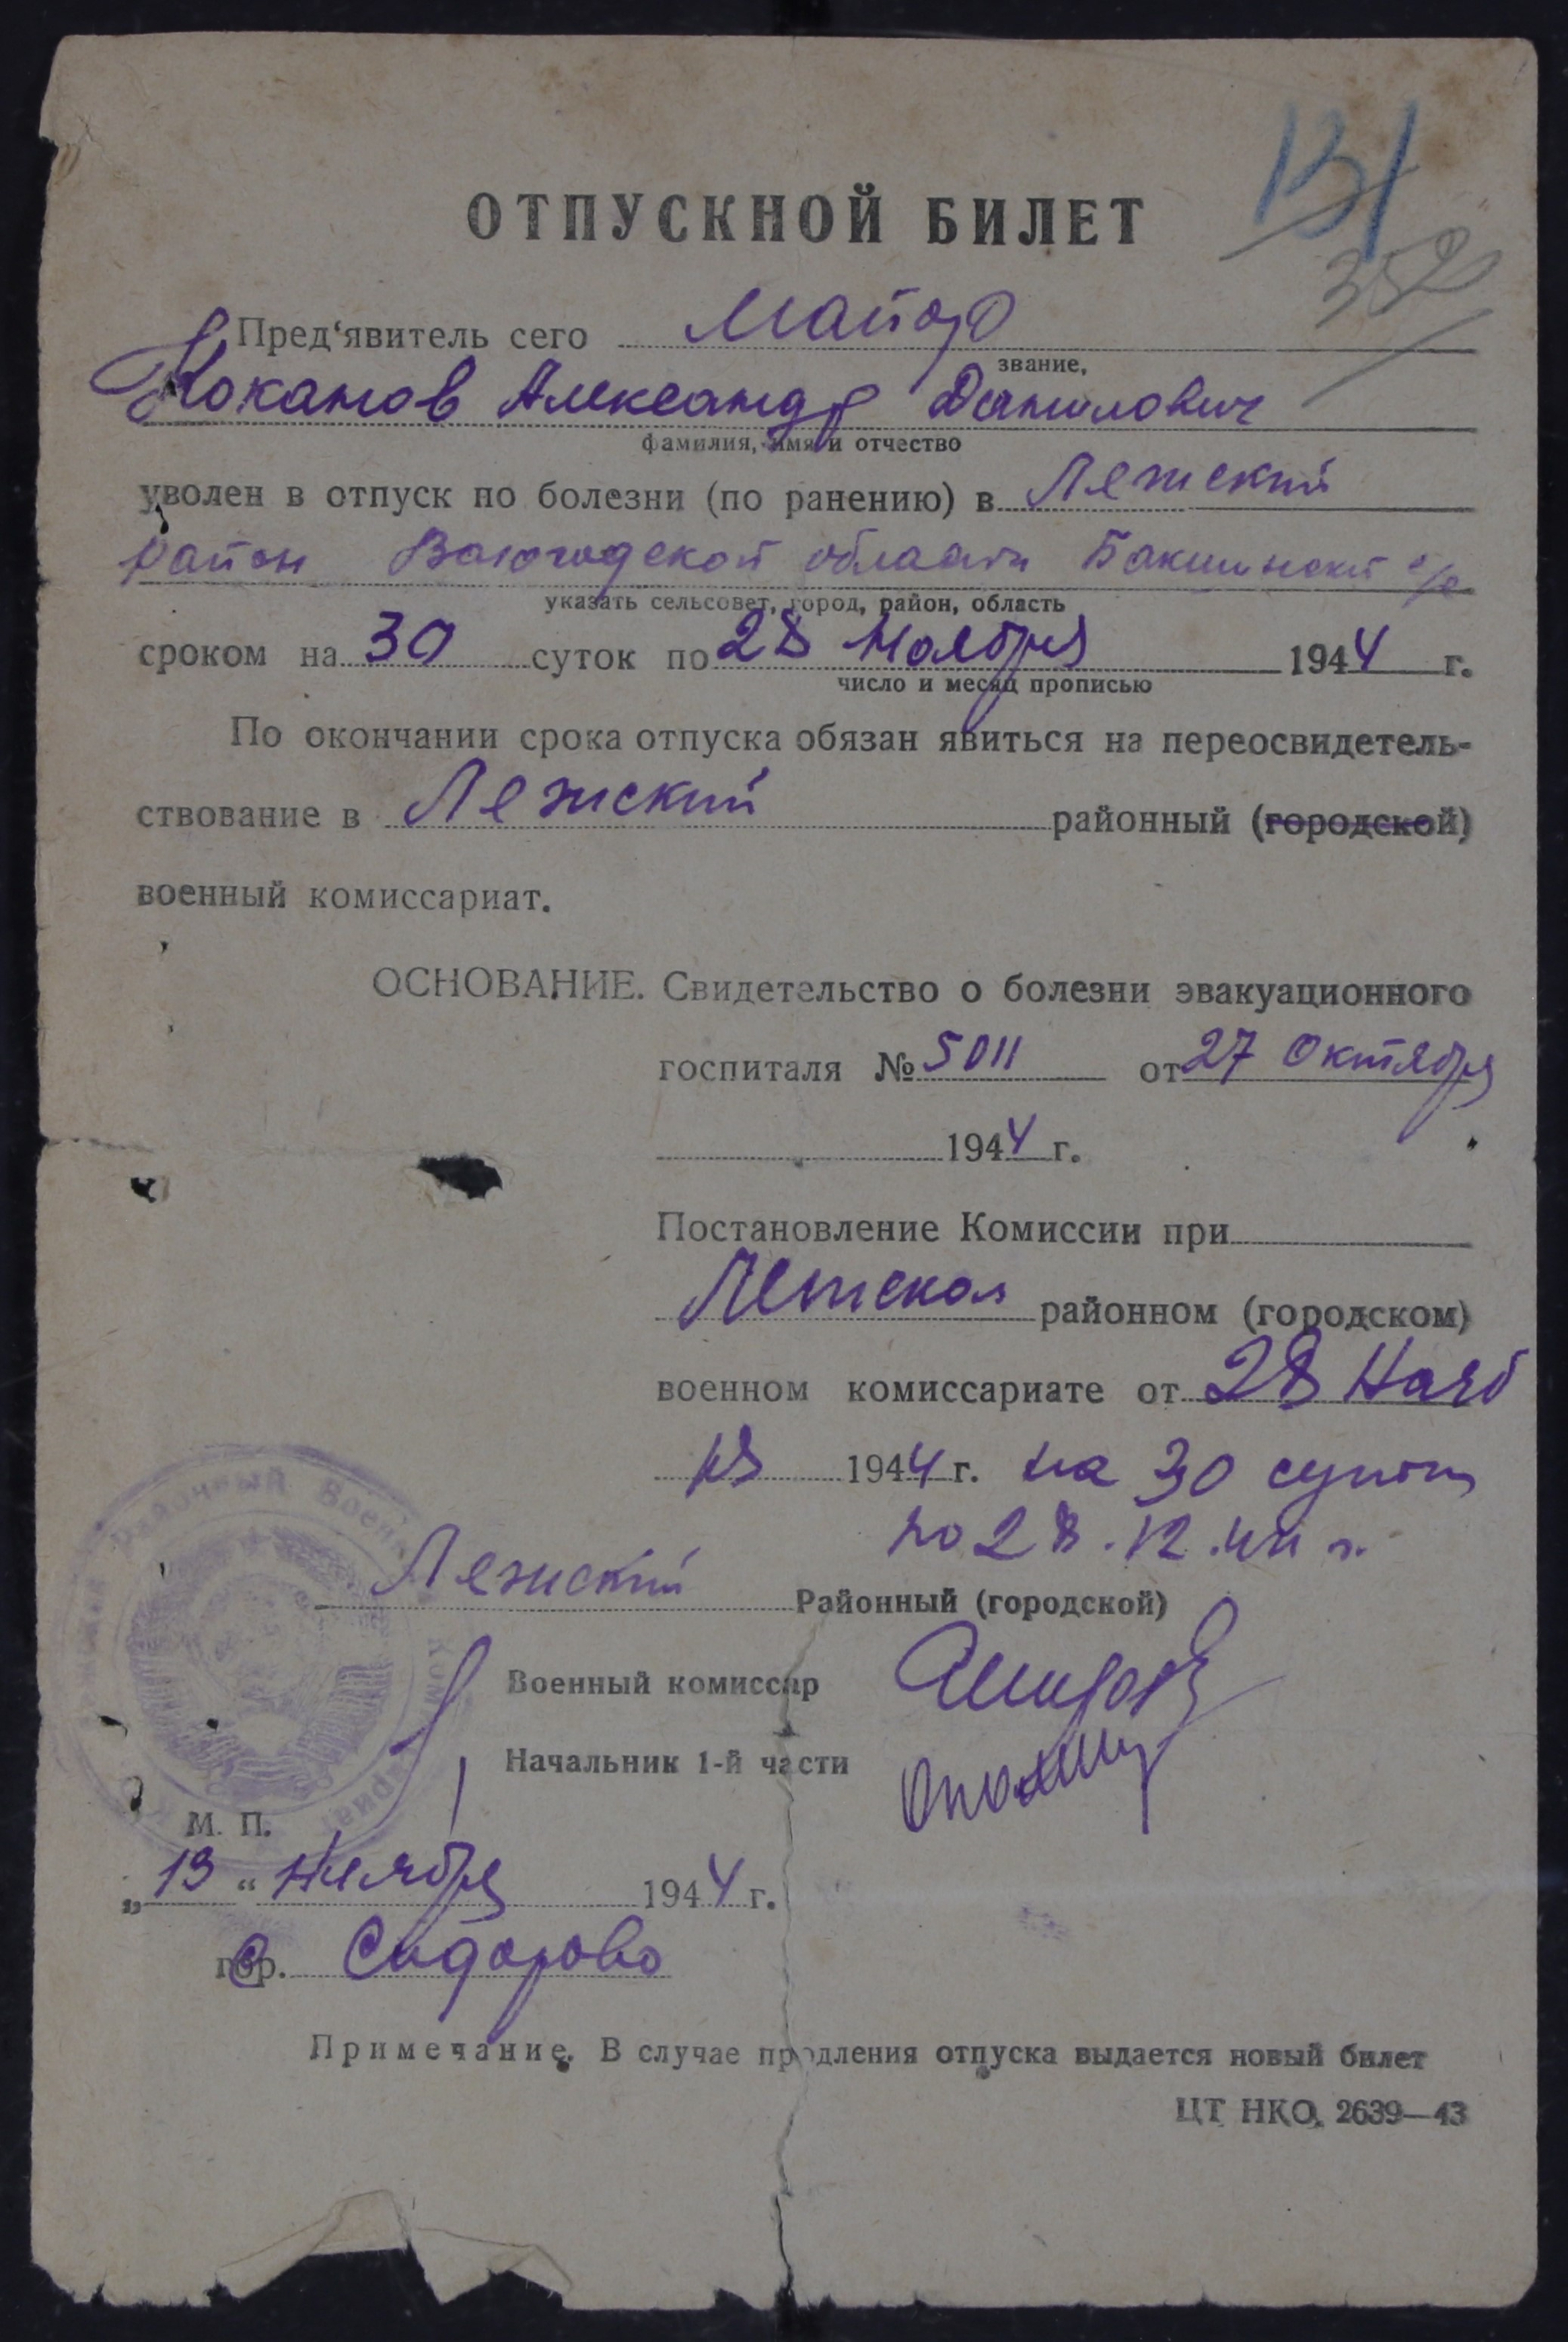 131
352
ОТПУСКНОЙ БИЛЕТ
Пред‘явитель сего Майор
звание,
Коканов Александр Данилович
фамилия, имя и отчество
уволен в отпуск по болезни (по ранению) в Лежский
район Вологодской области Бакшинский с/с
указать сельсовет, город, район, область
сроком на 30 суток по 28 Ноября 1944 г.
число и месяц прописью
По окончании срока отпуска обязан явиться на переосвидетель-
ствование в Лежский районный (городской)
военный комиссариат.
ОСНОВАНИЕ. Свидетельство о болезни эвакуационного
госпиталя № 5011 от 27 Октября
1944 г.
Постановление Комиссии при
Лежском районном (городском)
военном комиссариате от 28 Нояб
ря 1944 г. на 30 суток
по 28.12.44 г.
Лежский Районный (городской)
Военный комиссар
Начальник 1-й части
М. П.
„19“ Ноября 1944 г.
гор. с Сидорово
Примечание. В случае продления отпуска выдается новый билет
ЦТ НКО, 2639—43
Районный Военный